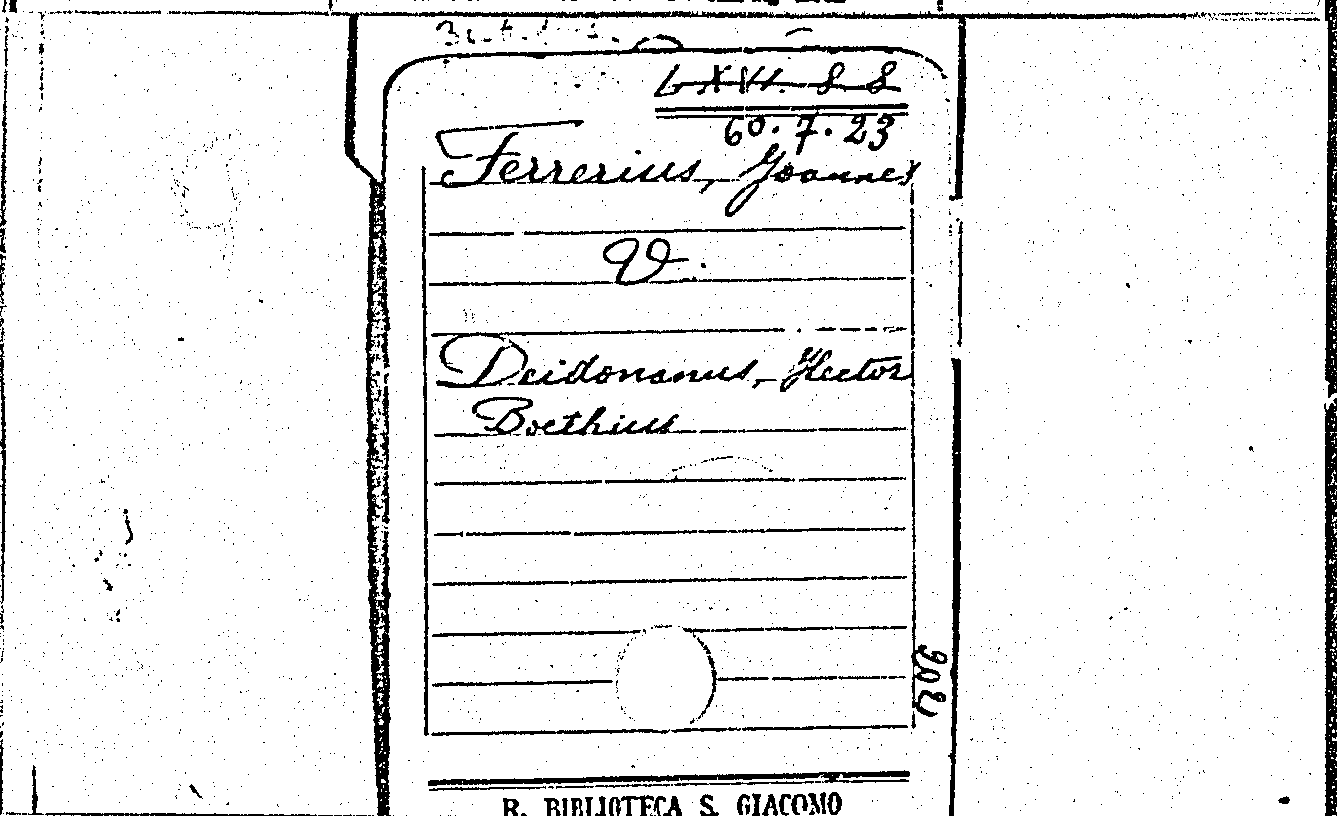 LXVI. 8 8
60. 7. 23
Ferrerius, Joannes
V.
Deidonanus, Hector
Boethius
902
R. BIBLIOTECA S. GIACOMO